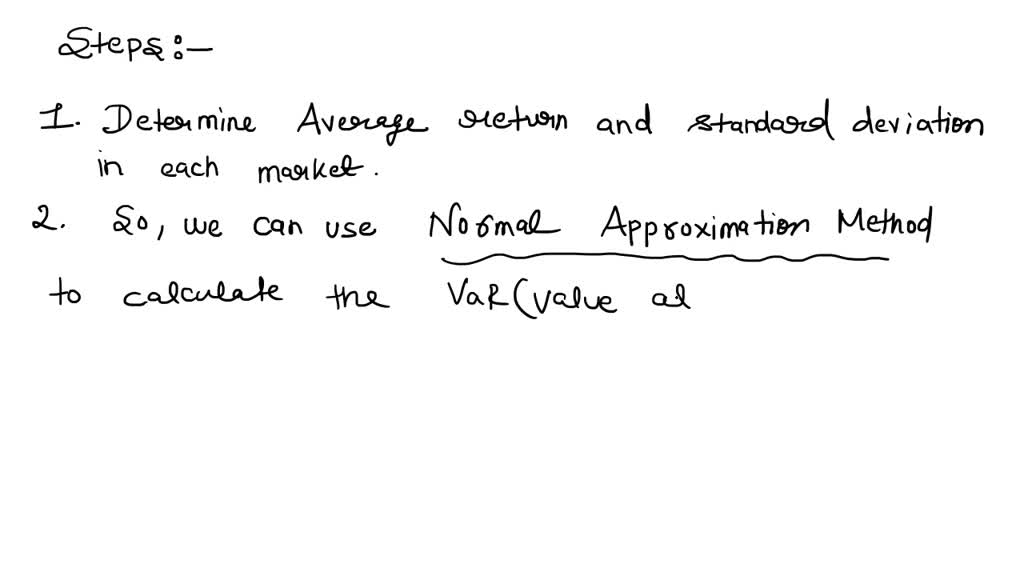 Steps:-
1. Determine Average return and standard deviation
in each market.
2. So, we can use Normal Approximation Method
to calculate the VaR(value at